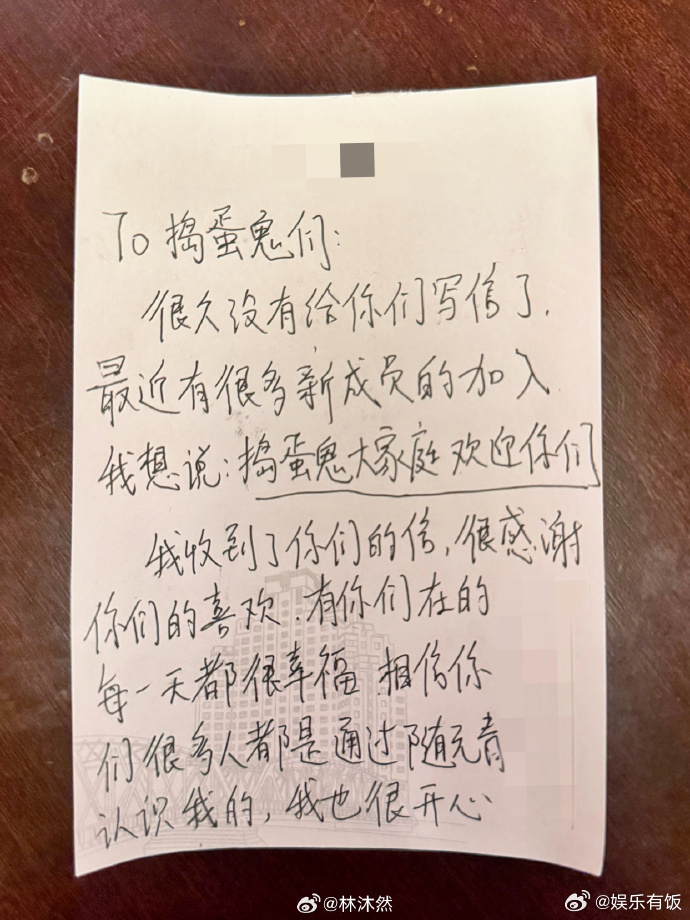 To 捣蛋鬼们:
很久没有给你们写信了,
最近有很多新成员的加入
我想说:捣蛋鬼大家庭欢迎你们
我收到了你们的信,很感谢
你们的喜欢.有你们在的
每一天都很幸福 相信你
们很多人都是通过随元青
认识我的,我也很开心
@林沐然
@娱乐有饭